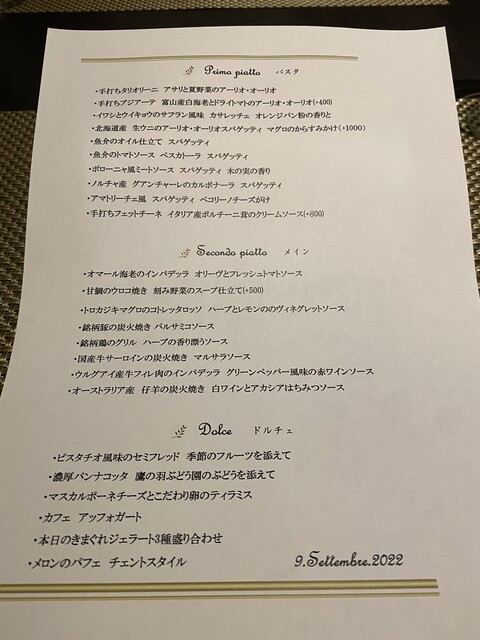 Primo piatto パスタ
・手打ちタリオリーニ アサリと夏野菜のアーリオ・オーリオ
・手打ちブジアーテ 富山産白海老とドライトマトのアーリオ・オーリオ(+400)
・イワシとウイキョウのサフラン風味 カサレッチェ オレンジパン粉の香りと
・北海道産 生ウニのアーリオ・オーリオスパゲッティ マグロのからすみかけ(+1000)
・魚介のオイル仕立て スパゲッティ
・魚介のトマトソース ペスカトーラ スパゲッティ
・ボローニャ風ミートソース スパゲッティ 木の実の香り
・ノルチャ産 グアンチャーレのカルボナーラ スパゲッティ
・アマトリーチェ風 スパゲッティ ペコリーノチーズがけ
・手打ちフェットチーネ イタリア産ポルチーニ茸のクリームソース(+800)
Secondo piatto メイン
・オマール海老のインパデッラ オリーヴとフレッシュトマトソース
・甘鯛のウロコ焼き 刻み野菜のスープ仕立て(+500)
・トロカジキマグロのコトレッタロッソ ハーブとレモンののヴィネグレットソース
・銘柄豚の炭火焼き バルサミコソース
・銘柄鶏のグリル ハーブの香り漂うソース
・国産牛サーロインの炭火焼き マルサラソース
・ウルグアイ産牛フィレ肉のインパデッラ グリーンペッパー風味の赤ワインソース
・オーストラリア産 仔羊の炭火焼き 白ワインとアカシアはちみつソース
Dolce ドルチェ
・ピスタチオ風味のセミフレッド 季節のフルーツを添えて
・濃厚パンナコッタ 鷹の羽ぶどう園のぶどうを添えて
・マスカルポーネチーズとこだわり卵のティラミス
・カフェ アッフォガート
・本日のきまぐれジェラート3種盛り合わせ
・メロンのパフェ チェントスタイル 9.Settembre.2022